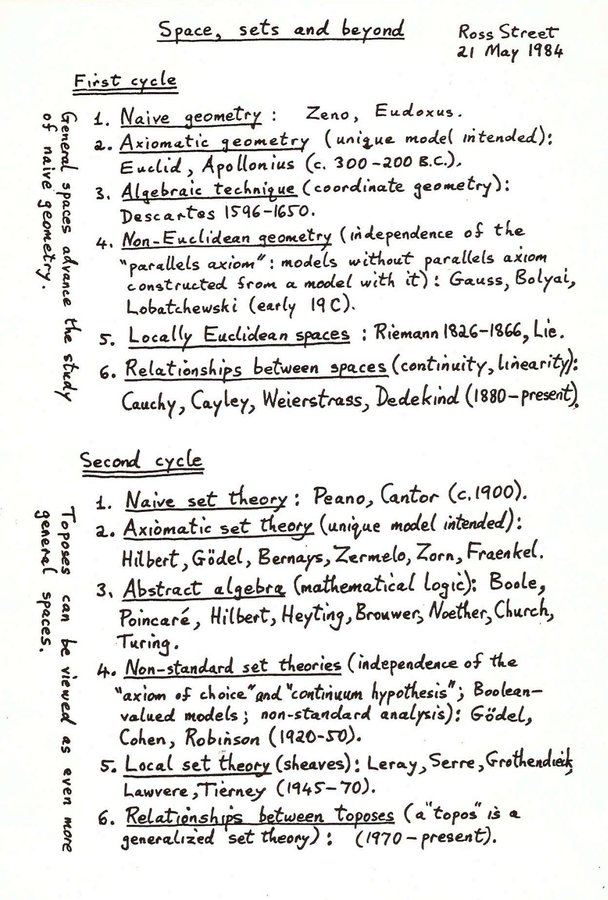 Space, sets and beyond
Ross Street
21 May 1984
First cycle
General spaces advance the study
of naive geometry.
1. Naive geometry : Zeno, Eudoxus.
2. Axiomatic geometry (unique model intended):
Euclid, Apollonius (c. 300-200 B.C.).
3. Algebraic technique (coordinate geometry):
Descartes 1596-1650.
4. Non-Euclidean geometry (independence of the
"parallels axiom": models without parallels axiom
constructed from a model with it): Gauss, Bolyai,
Lobatchewski (early 19C).
5. Locally Euclidean spaces : Riemann 1826-1866, Lie.
6. Relationships between spaces (continuity, linearity):
Cauchy, Cayley, Weierstrass, Dedekind (1880-present).
Second cycle
Toposes can be viewed as even more
general spaces.
1. Naive set theory : Peano, Cantor (c.1900).
2. Axiomatic set theory (unique model intended):
Hilbert, Gödel, Bernays, Zermelo, Zorn, Fraenkel.
3. Abstract algebra (mathematical logic): Boole,
Poincaré, Hilbert, Heyting, Brouwer, Noether, Church,
Turing.
4. Non-standard set theories (independence of the
"axiom of choice" and "continuum hypothesis"; Boolean-
valued models; non-standard analysis): Gödel,
Cohen, Robinson (1920-50).
5. Local set theory (sheaves): Leray, Serre, Grothendieck,
Lawvere, Tierney (1945-70).
6. Relationships between toposes (a "topos" is a
generalized set theory) : (1970-present).